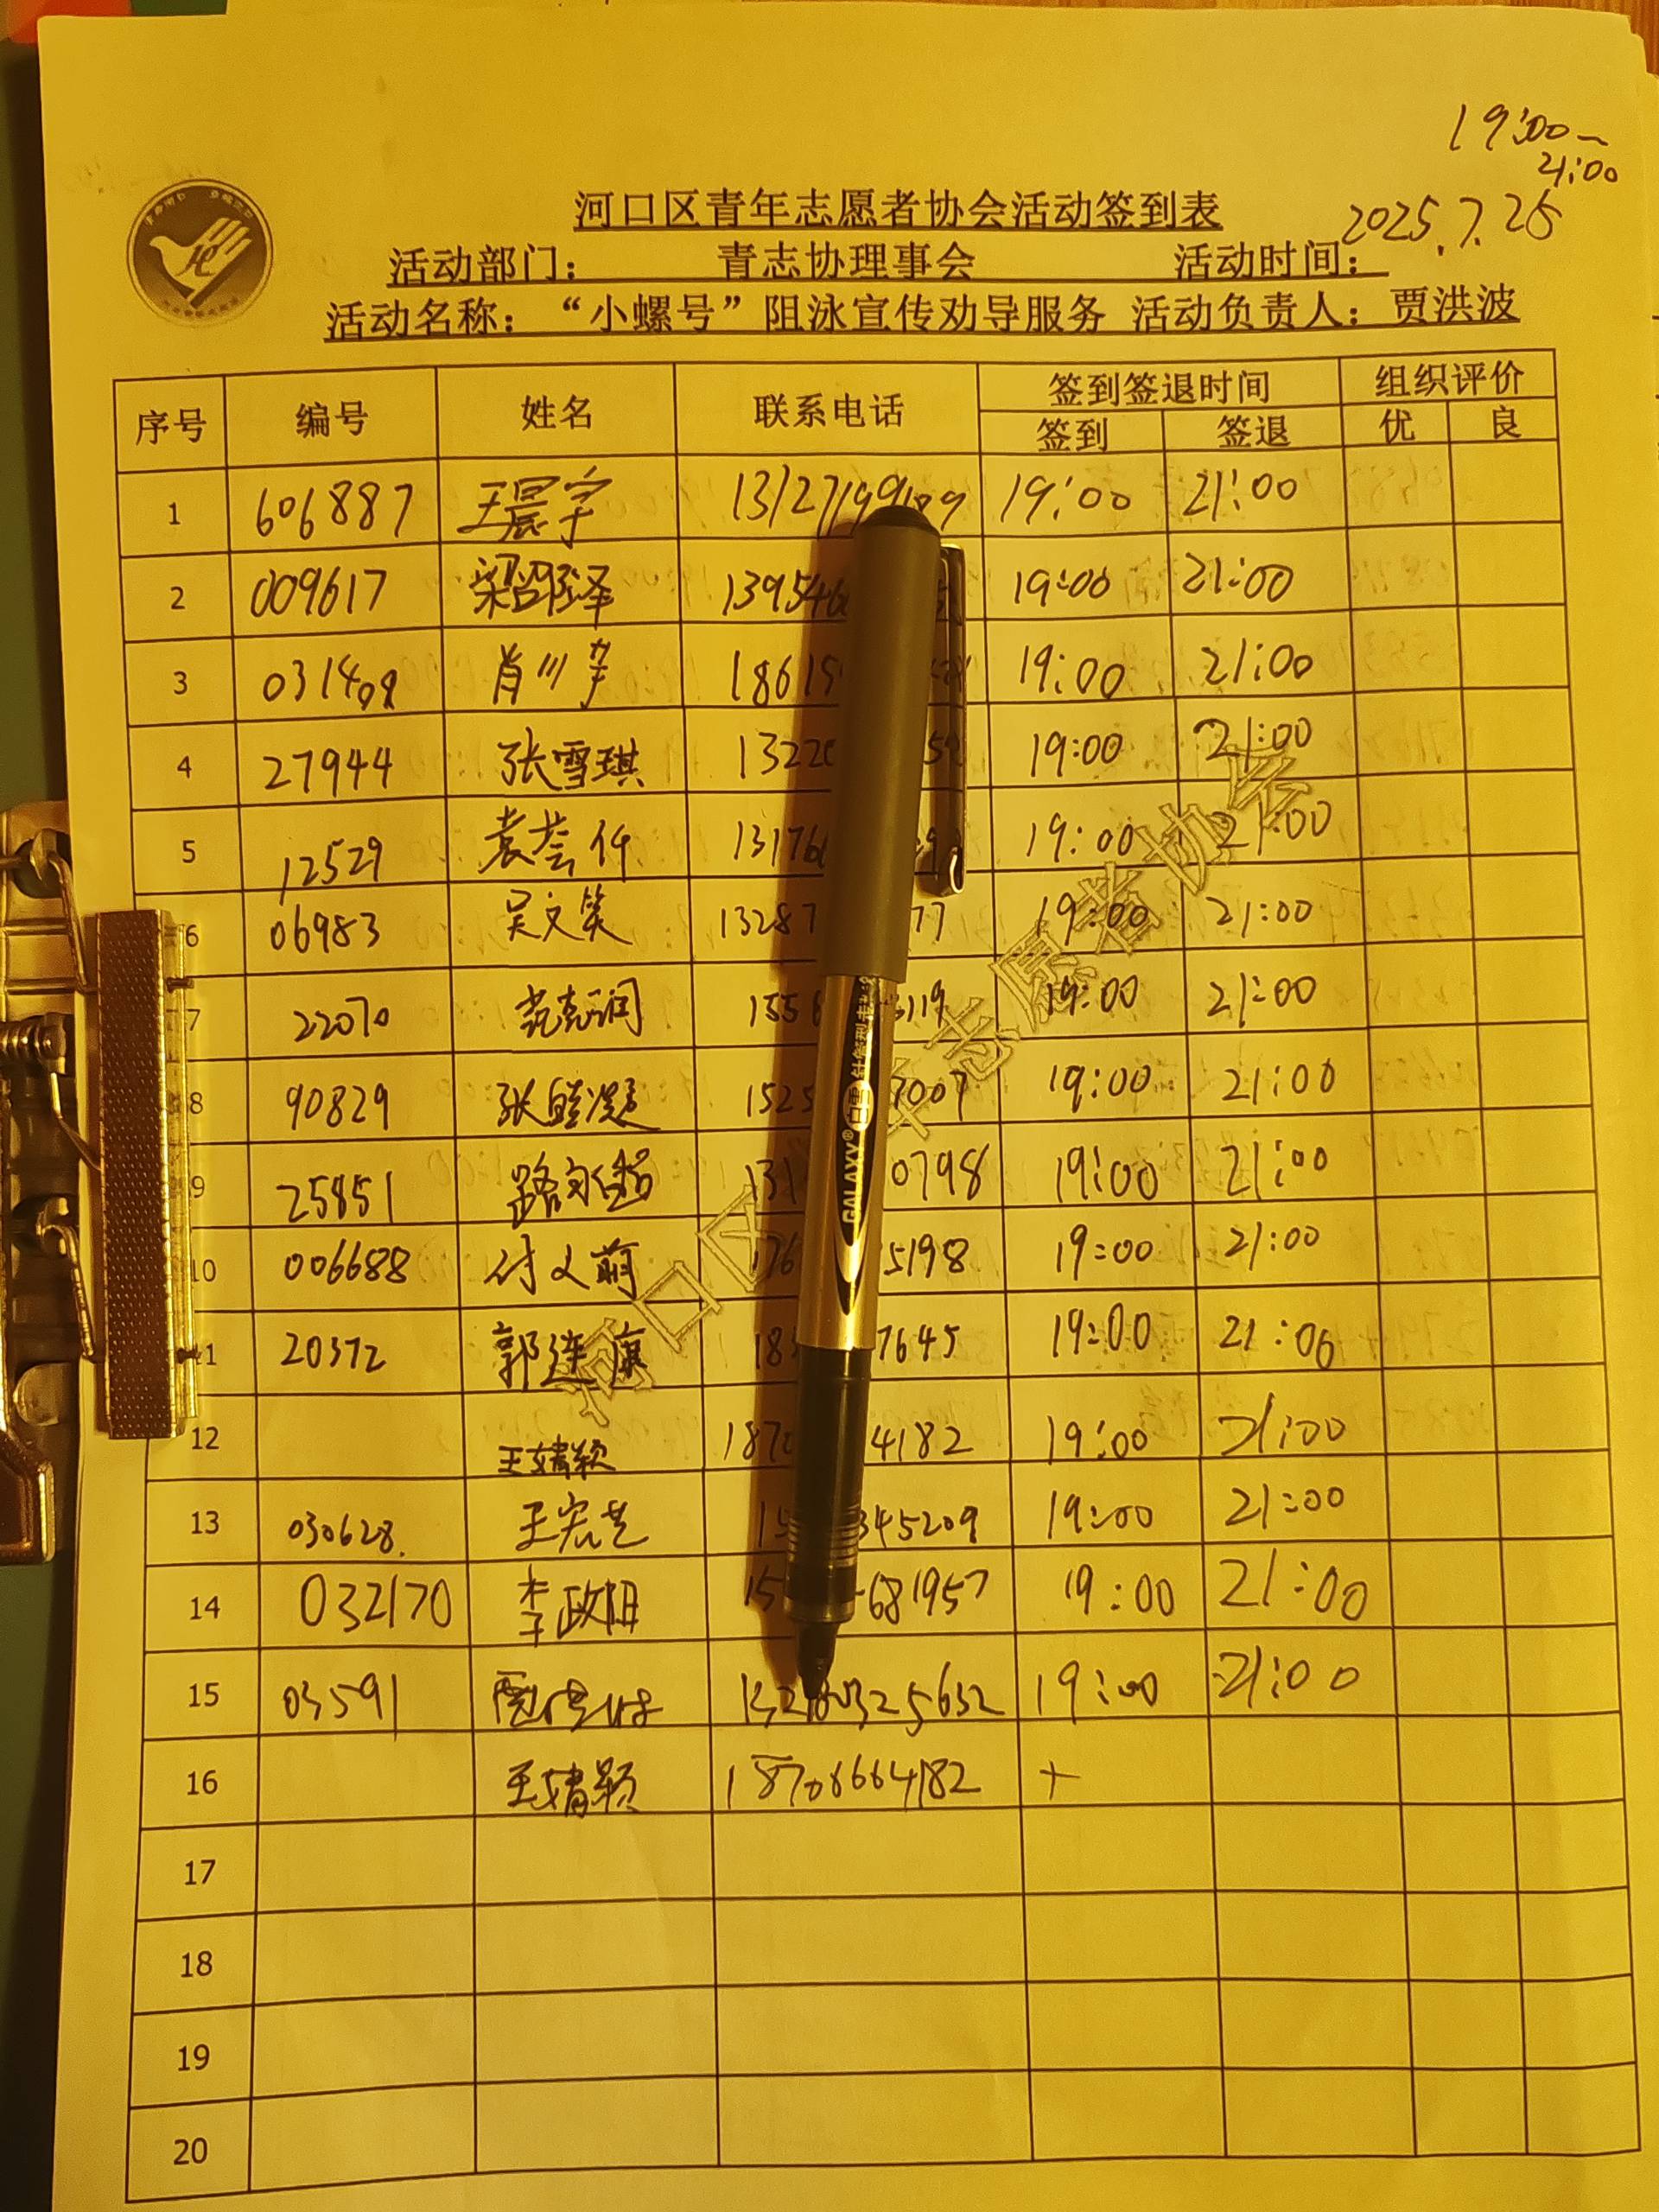 19:00~
21:00
河口区青年志愿者协会活动签到表
2025.7.25
活动部门： 青志协理事会 活动时间：
活动名称：“小螺号”阻泳宣传劝导服务 活动负责人：贾洪波
序号 编号 姓名 联系电话 签到签退时间 组织评价
签到 签退 优 良
1 606887 王晨宇 19:00 21:00
2 009617 梁韶泽 139546 19:00 21:00
3 031408 肖 18615 19:00 21:00
4 27944 张雪琪 1322 19:00 21:00
5 12529 袁芸仟 13176 19:00 21:00
6 06983 吴文笑 13287 77 19:00 21:00
7 22070 范克润 155 119 19:00 21:00
8 90829 张 152 7007 19:00 21:00
9 25851 路 131 0798 19:00 21:00
10 006688 付文萌 176 5198 19:00 21:00
11 20372 郭连康 18 7645 19:00 21:00
12 王婧颖 187 4182 19:00 21:00
13 030628. 王宏艺 15 345209 19:00 21:00
14 032170 李政阳 15 681957 19:00 21:00
15 03591 贾洪波 19:00 21:00
16 王婧颖 18706664182 +
17
18
19
20
河口区 年志愿者协会
GALAXY® 白雪